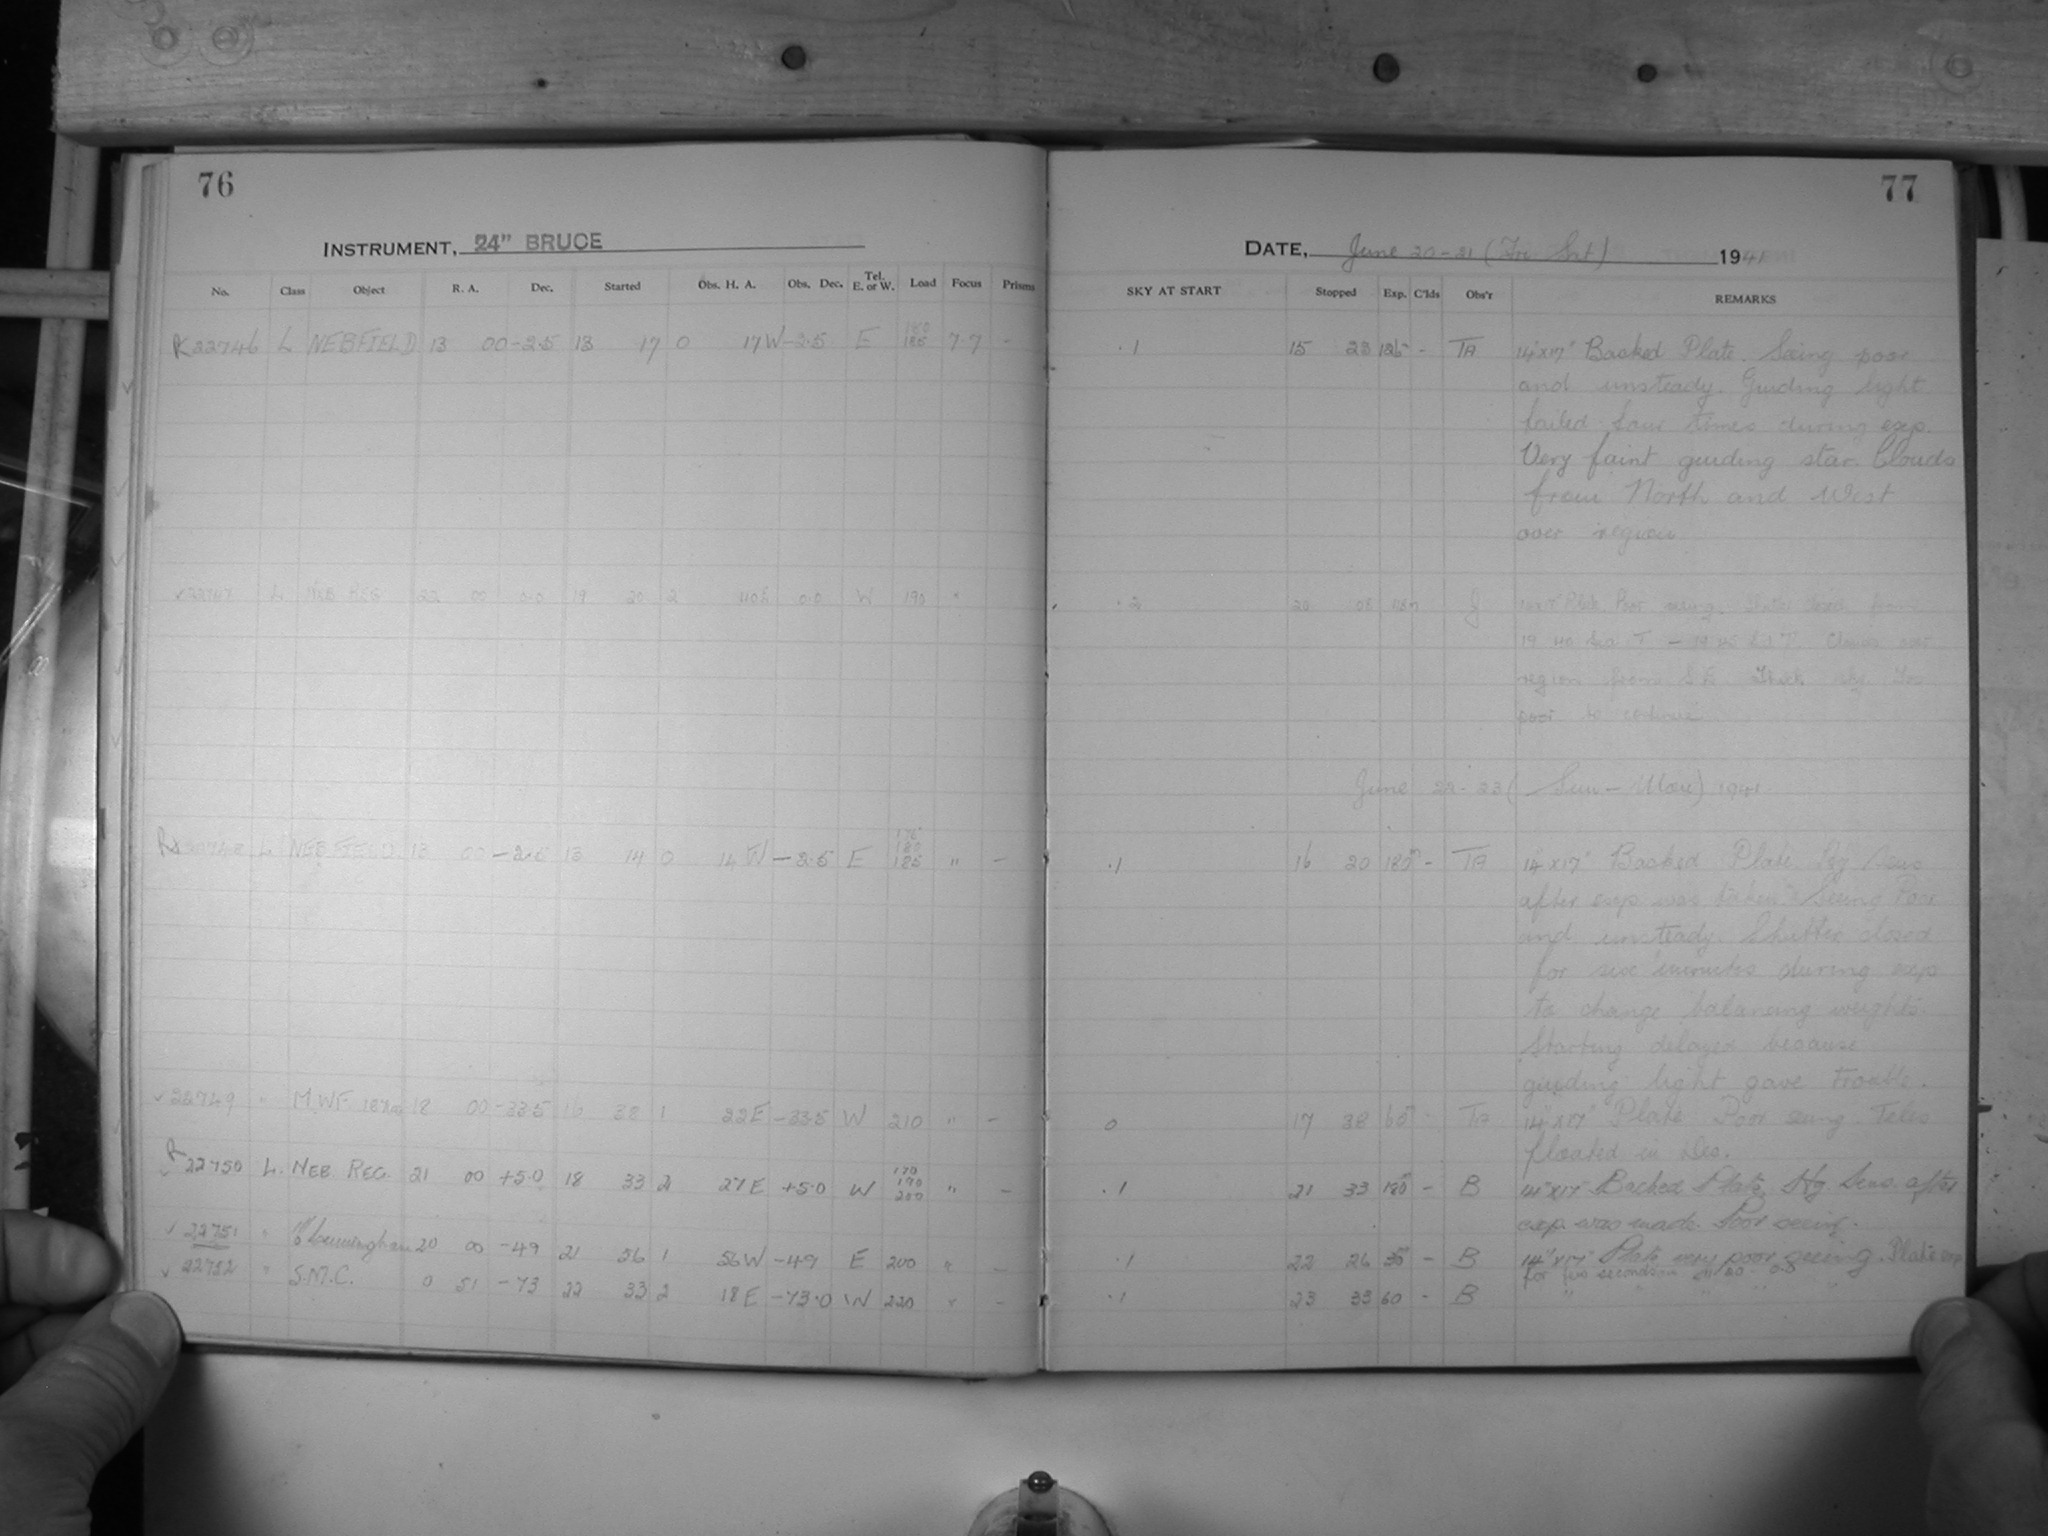 76
INSTRUMENT, 24" BRUCE
No. Class Object R. A. Dec. Started Obs. H. A. Obs. Dec. Tel. E. or W. Load Focus Prisms
R 22746 L NEBFIELD 13 00 -2.5 13 17 0 17 W -2.5 E 180 185 7.7 -
22747 L NEB REG 22 00 0.0 19 20 2 40E 0.0 W 190 "
L NEBFIELD 13 00 -2.5 13 14 0 14 W -2.5 E 175 180 185 " -
22749 " M.W.F. 18 00 -33.5 16 38 1 22E -33.5 W 210 " -
R 22750 L. NEB. REG. 21 00 +5.0 18 33 2 27 E +5.0 W 170 190 200 " -
22751 " Cunningham 20 00 -49 21 56 1 56W -49 E 200 " -
22752 " S.M.C. 0 51 -73 22 33 2 18E -73.0 W 220 " -
77
DATE, June 20-21 (Fri Sat) 1941
SKY AT START Stopped Exp. C'lds Obs'r REMARKS
.1 15 23 - TA 14"x17" Backed Plate. Seeing poor
and unsteady. Guiding light
failed four times during exp.
Very faint guiding star. Clouds
from North and West
over region
.2 20 08 J Plate Poor seeing.
19 40 Clouds over
region from S E Thick sky Too
poor to continue
June 22-23 (Sun - Mon) 1941
.1 16 20 180 - TA 14"x17" Backed Plate Hg Sens
after exp was taken Seeing Poor
and unsteady. Shutter closed
for six minutes during exp
to change balancing weights.
Starting delayed because
guiding light gave trouble.
0 17 38 60 - TA 14"x17" Plate Poor seeing. Teles
floated in Dec.
.1 21 33 180 - B 14"x17" Backed Plate. Hg. Sens. after
exp. was made. Poor seeing.
.1 22 26 30 - B 14"x17" Plate very poor seeing. Plate exp
for few seconds
.1 23 33 60 - B " " " " "